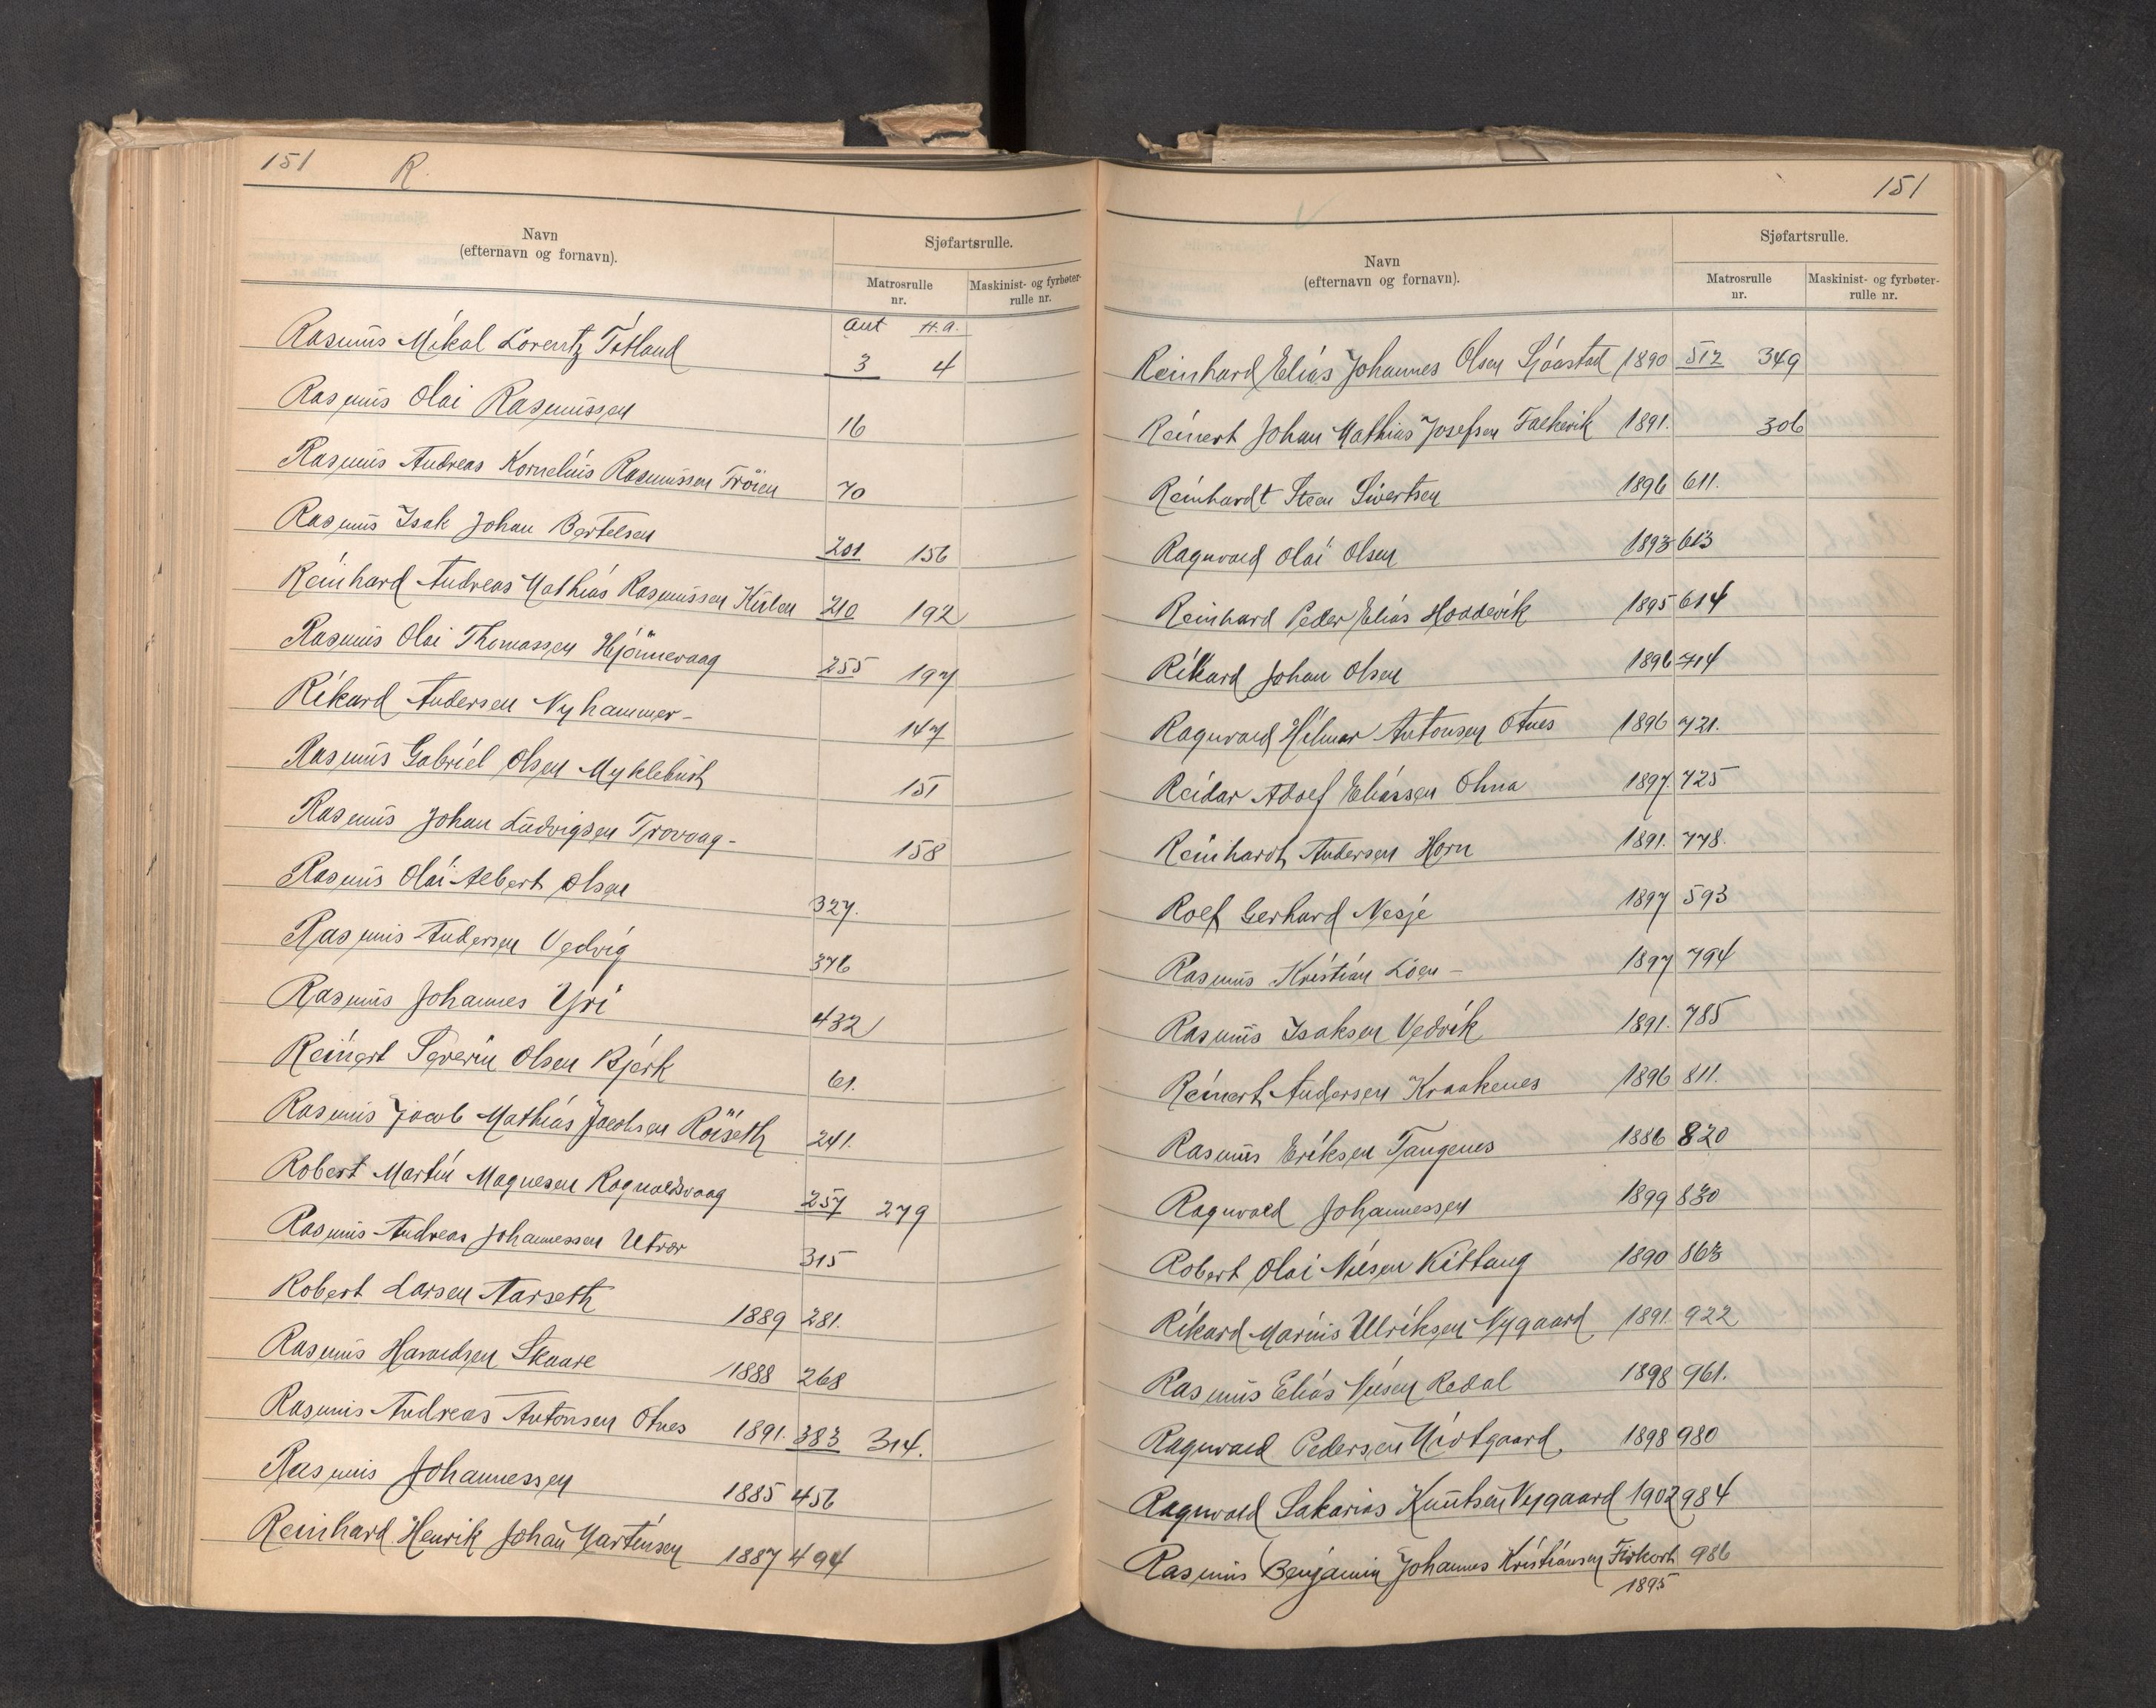 151 R.
Navn
(efternavn og fornavn).
Sjøfartsrulle.
Matrosrulle
nr.
Maskinist- og fyrbøter-
rulle nr.
Ant H.a.
Rasmus Mikal Lorentz Tetland 3 4
Rasmus Olai Rasmussen 16
Rasmus Andreas Kornelius Rasmussen Fröien 70
Rasmus Isak Johan Bertelsen 201 156
Reinhard Andreas Mathias Rasmussen 210 192
Rasmus Olai Thomassen Hjönnevaag 255 197
Rikard Andersen Nyhammer- 147
Rasmus Gabriel Olsen Myklebust 151
Rasmus Johan Ludvigsen Trovaag- 158
Rasmus Olai Albert Olsen 327.
Rasmus Andersen Vedvig 376
Rasmus Johannes Yri 432
Reinert Severin Olsen Bjerk 61.
Rasmus Jacob Mathias Jacobsen Röiseth 241.
Robert Martin Magnesen Rognaldsvaag 257 279
Rasmus Andreas Johannessen Utvær 315
Robert Larsen Aarseth 1889 281.
Rasmus Haraldsen Skaare 1888 268
Rasmus Andreas Antonsen Otnes 1891. 383 314.
Rasmus Johannessen 1885 456
Reinhard Henrik Johan Martinsen 1887 494
151
Navn
(efternavn og fornavn).
Sjøfartsrulle.
Matrosrulle
nr.
Maskinist- og fyrbøter-
rulle nr.
Reinhard Elias Johannes Olsen Sjöastad 1890 512 349
Reinert Johan Mathias Josefsen Falkevik 1891. 306
Reinhardt Steen Sivertsen 1896 611.
Ragnvald Olai Olsen 1893 613
Reinhard Peder Elias Hoddevik 1895 614
Rikard Johan Olsen 1896 714
Ragnvald Hilmar Antonsen Otnes 1896 721.
Reidar Adolf Eliassen Ohna 1897. 725
Reinhardt Andersen Horn 1891. 778.
Rolf Gerhard Nesje 1897 593
Rasmus Kristian Löen - 1897 794
Rasmus Isaksen Vedvik 1891. 785
Reinert Andersen Kraakenes 1896 811.
Rasmus Eriksen Tangenes 1886 820
Ragnvald Johannessen 1899 830
Robert Olai Nilsen Kittang 1890 863
Rikard Marius Ulriksen Nygaard 1891. 922
Rasmus Elias Nilsen Redal 1898 961.
Ragnvald Pedersen Midtgaard 1898 980
Ragnvald Sakarias Knutsen Nygaard 1902 984
Rasmus Benjamin Johannes Kristiansen 986
1895